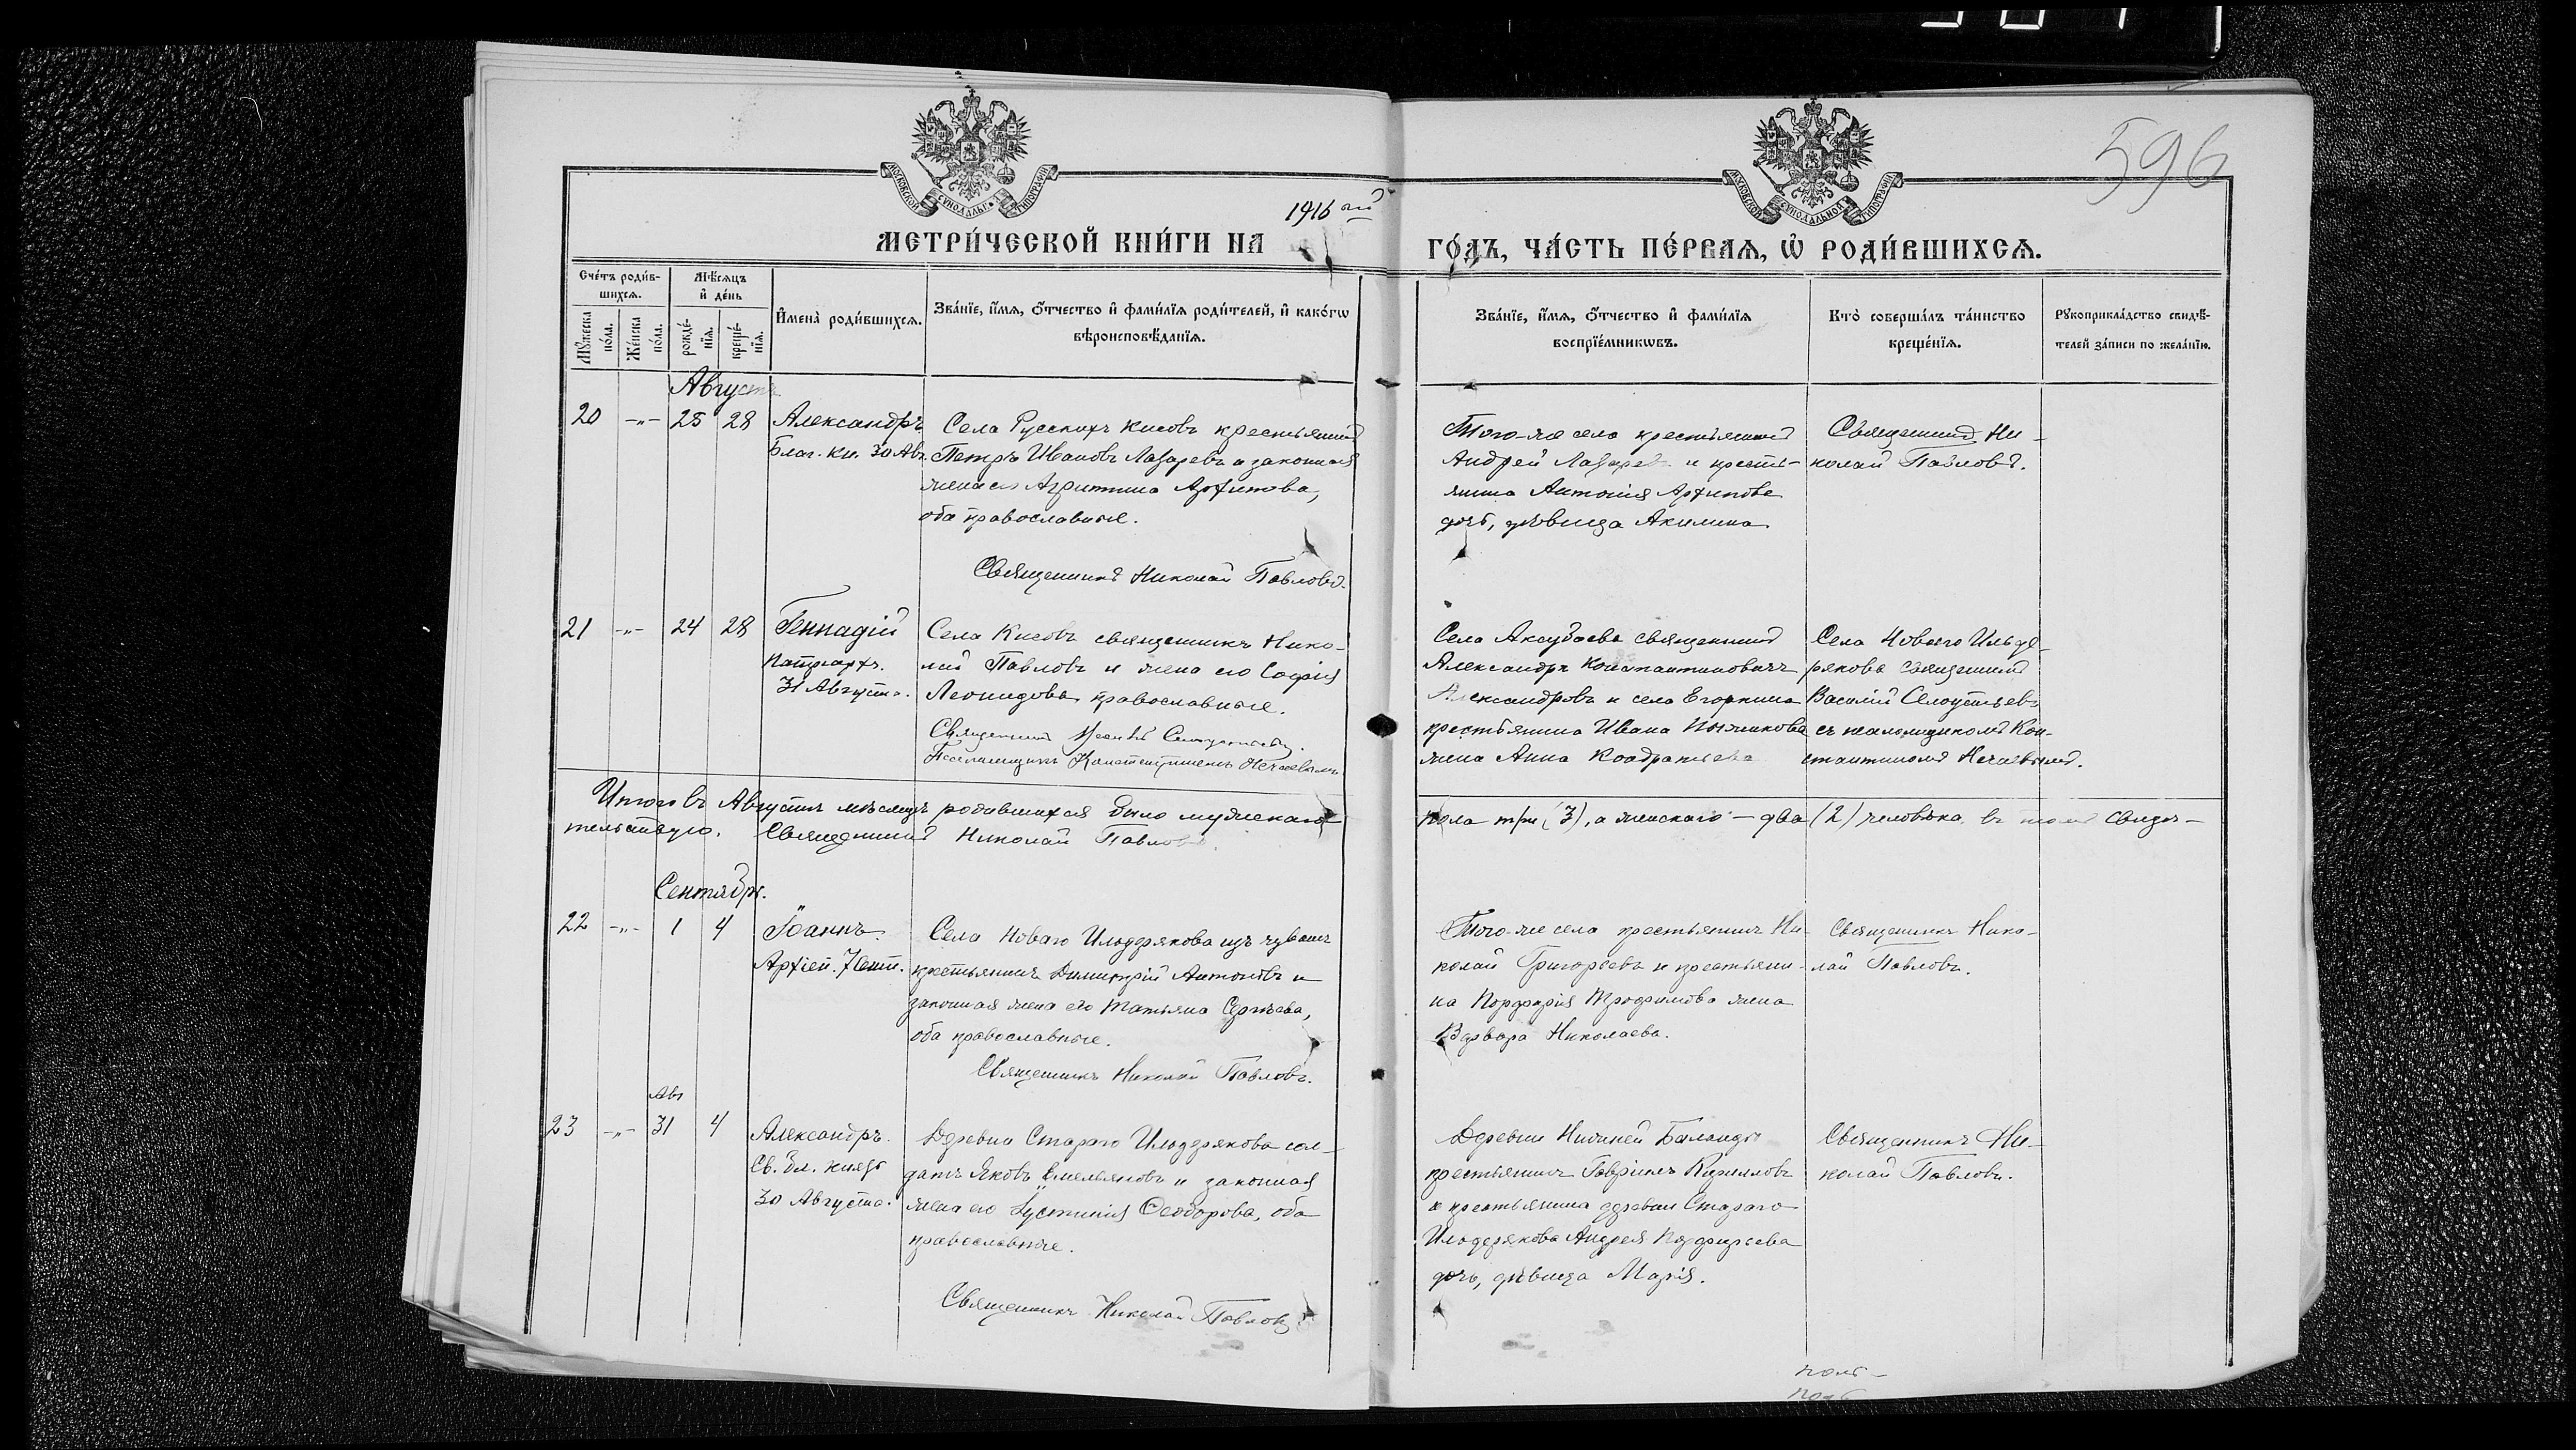 596
МОСКОВСКОЙ СѴНОДАЛЬНОЙ ТИПОГРАФІИ
МОСКОВСКОЙ СѴНОДАЛЬНОЙ ТИПОГРАФІИ
1916 ый
МЕТРИ́ЧЕСКОЙ КНИ́ГИ НА
ГО́ДЪ, ЧА́СТЬ ПЕ́РВАѦ, Ѡ҆ РОДИ́ВШИХСѦ.
Сче́тъ роди́в-
шихсѧ.
Мѣ́сѧцъ
и҆ де́нь
Мꙋ́жеска по́ла.
Же́нска по́ла.
рожде́-
нїѧ.
креще́-
нїѧ.
И҆мена̀ роди́вшихсѧ.
Зва́нїе, и҆́мѧ, ѻ҆́тчество и҆ фами́лїѧ роди́телей, и҆ како́гѡ
вѣроисповѣ́данїѧ.
Зва́нїе, и҆́мѧ, ѻ҆́тчество и҆ фами́лїѧ
воспрїе́мникѡвъ.
Кто̀ соверша́лъ та́инство
креще́нїѧ.
Рꙋкоприкла́дство свидѣ́-
телей за́писи по жела́нїю.
Августъ
20 -„- 25 28 Александръ
Благ. кн. 30 Авг.
Села Русскихъ Кисовъ крестьянинъ
Петръ Ивановъ Лазаревъ и законная
жена его Агриппина Архипова,
оба православные.
Священникъ Николай Павловъ.
Того-же села крестьянинъ
Андрей Лазарев и кресть-
янина Антонія Архипова
дочь, дѣвица Акилина.
Священникъ Ни-
колай Павловъ.
21 -„- 24 28 Геннадій
Патріархъ.
31 Августа.
Села Кисовъ священникъ Нико-
лай Павловъ и жена его Софія
Леонидова православные.
Священникъ
Псаломщикъ Константинъ Нечаевъ
Села Аксубаева священникъ
Александръ Константиновичъ
Александровъ и села Егоркина
крестьянина Ивана
жена Анна Кондратьева
Села Новаго Ильде-
рякова священникъ
Василій
съ псаломщикомъ Кон-
стантиномъ Нечаевымъ.
Итого въ Августѣ мѣсяцѣ родившихся было мужескаго
пола три (3), а женскаго — два (2) человѣка, въ томъ свидѣ-
тельствую. Священникъ Николай Павловъ.
Сентябрь.
22 -„- 1 4 Іоаннъ.
Архіеп. 7 Сент.
Села Новаго Ильдерякова изъ чувашъ
крестьянинъ Димитрій Антоновъ и
законная жена его Татьяна Сергѣева,
оба православные.
Священникъ Николай Павловъ.
Того-же села крестьянинъ Ни-
колай Григорьевъ и крестьяни-
на Порфирія Трофимова жена
Варвара Николаева.
Священникъ Нико-
лай Павловъ.
Авг
23 -„- 31 4 Александръ.
Св. бл. князь
30 Августа.
Деревни Стараго Ильдерякова сол-
датъ Яковъ Емельяновъ и законная
жена его Іустинія Ѳеодорова, оба
православные.
Священникъ Николай Павловъ
Деревни Нижней Баланды
крестьянинъ Гавріилъ Кирилловъ
и крестьянина деревни Стараго
Ильдерякова Андрея Порфирьева
дочь, дѣвица Марія.
Священникъ Ни-
колай Павловъ.